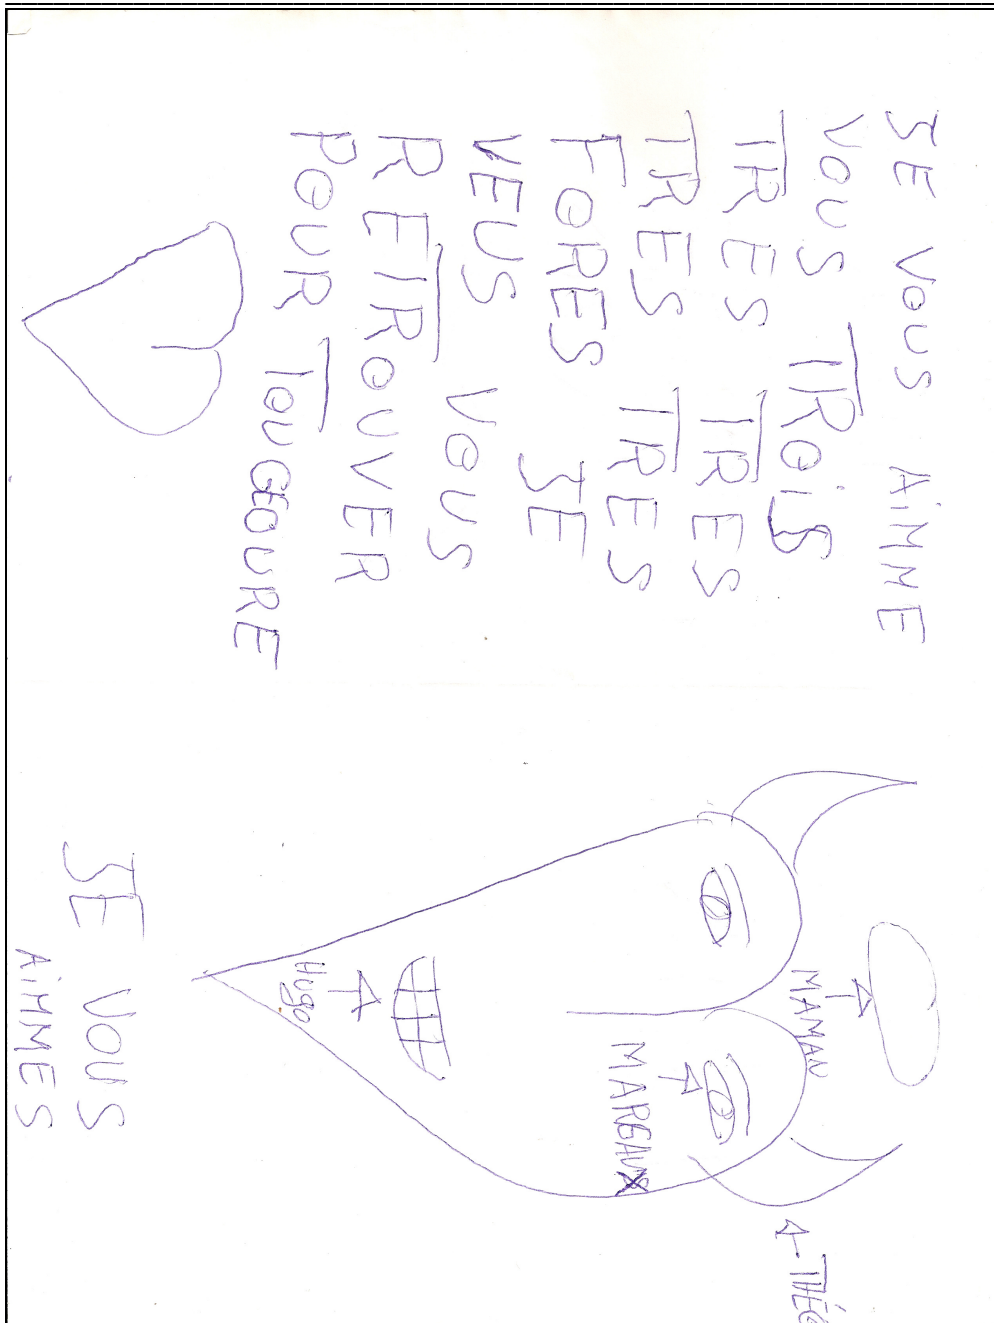 JE VOUS AiMME
VOUS TROiS
TRES TRES
TRES TRES
FORES JE
VEUS VOUS
RETROUVER
POUR TOUGEOURE
MAMAN
THÉO
MARGAUX
Hugo
JE VOUS
AiMMES